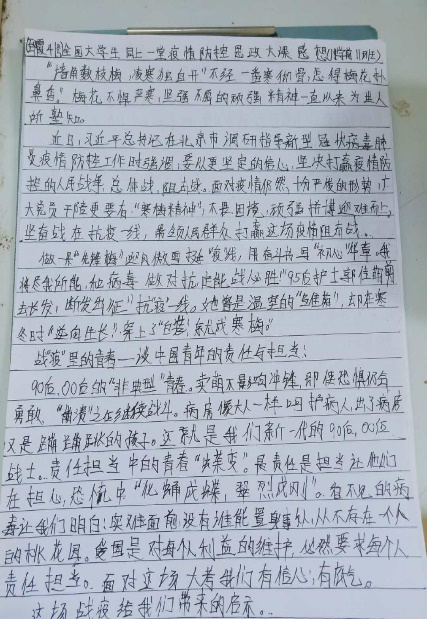 全国大学生同上一堂疫情防控思政大课感想
"墙角数枝梅,凌寒独自开""不经一番寒彻骨,怎得梅花扑
鼻香。"梅花不惧严寒,坚强不屈的顽强精神一直以来为世人
所熟知。
近日,习近平总书记在北京市调研指导新型冠状病毒肺
炎疫情防控工作时强调,要以更坚定的信心,坚决打赢疫情防
控的人民战争、总体战、阻击战。面对疫情依然十分严峻的形势,广
大党员干部更要有"寒梅精神",不畏困境,顽强拼搏迎难而上,
坚守战在抗疫一线,带领人民群众打赢这场疫情阻击战。
做一朵"先锋梅"迎风傲雪挺"疫"战,用奋斗书写"初心"华章。"我
将尽我所能,与病毒做对抗,定能战必胜!"95后护士郭佳萌剪
去长发,断发出征"抗疫"一线。她曾是温室的"
冬时"逆向生长",穿上了"白装",绽成寒梅。
战"疫"里的青春——谈中国青年的责任与担当:
90后、00后的"非典型"青春。卖萌不影响冲锋,即使恐惧仍会
勇敢,"崩溃"之后继续战斗。病房像大人一样呵护病人,出了病房
又是蹦蹦跳跳的孩子。这就是我们新一代的90后、00后
战士。责任担当中的青春"蝶变"。是责任是担当让他们
在担心,恐慌中"化蛹成蝶,
毒让我们明白:灾难面前没有谁能置身事外,从不存在一个人
的桃花园。爱国是对每个人利益的维护,必然要求每个人
责任担当。面对这场大考我们有信心,有底气。
这场战疫给我们带来的启示。